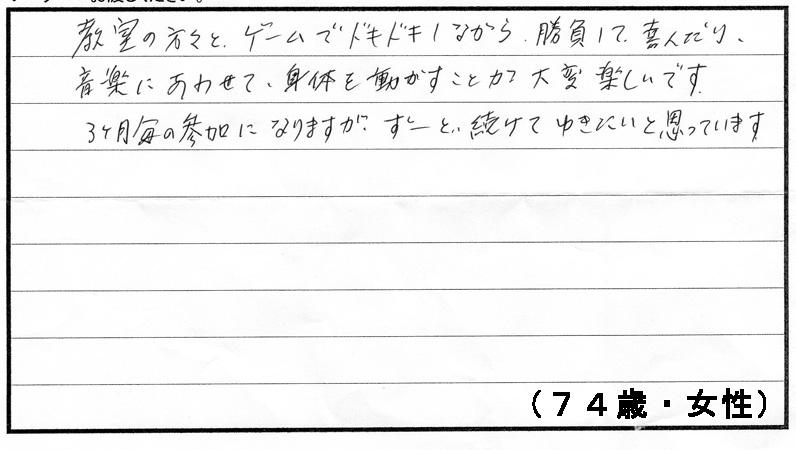 教室の方々と、ゲームでドキドキしながら、勝負して、喜んだり、
音楽にあわせて、身体を動かすことが大変楽しいです。
3ヶ月毎の参加になりますが、ずーと、続けてゆきたいと思っています
（７４歳・女性）